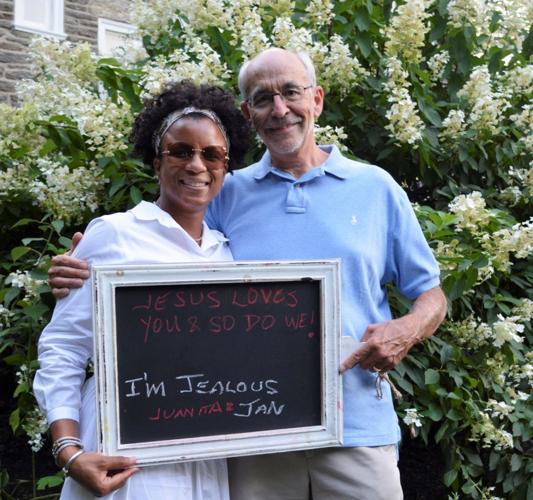 JESUS LOVES
YOU & SO DO WE!
I'M JEALOUS
JUANITA & JAN